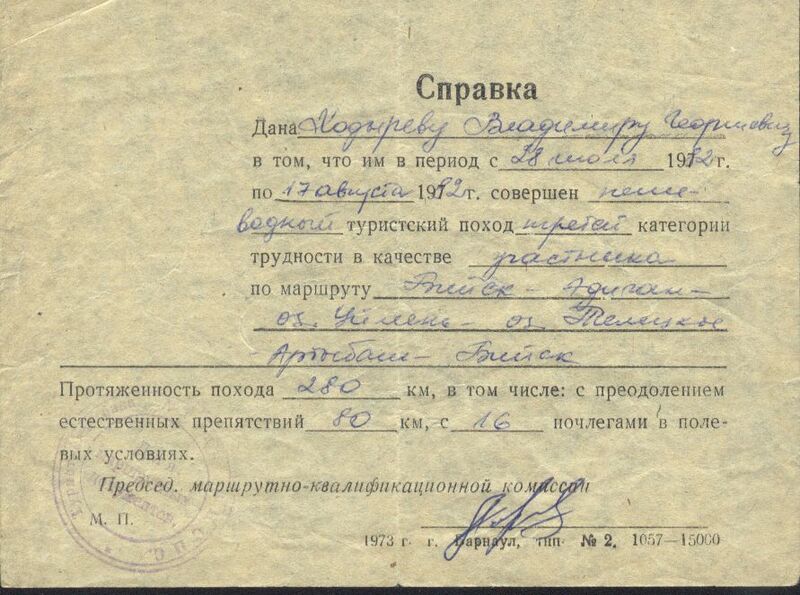 Справка
Дана Ходыреву Владимиру Георгиевичу
в том, что им в период с 28 июля 1982 г.
по 17 августа 1982 г. совершен пеше-
водный туристский поход третей категории
трудности в качестве участника
по маршруту Бийск - Адыган -
оз. Уймень - оз. Телецкое
- Артыбаш - Бийск
Протяженность похода 280 км, в том числе: с преодолением
естественных препятствий 80 км, с 16 ночлегами в поле-
вых условиях.
Председ. маршрутно-квалификационной комиссии
М. П.
1973 г. г. Барнаул, тип. № 2. 1057—15000